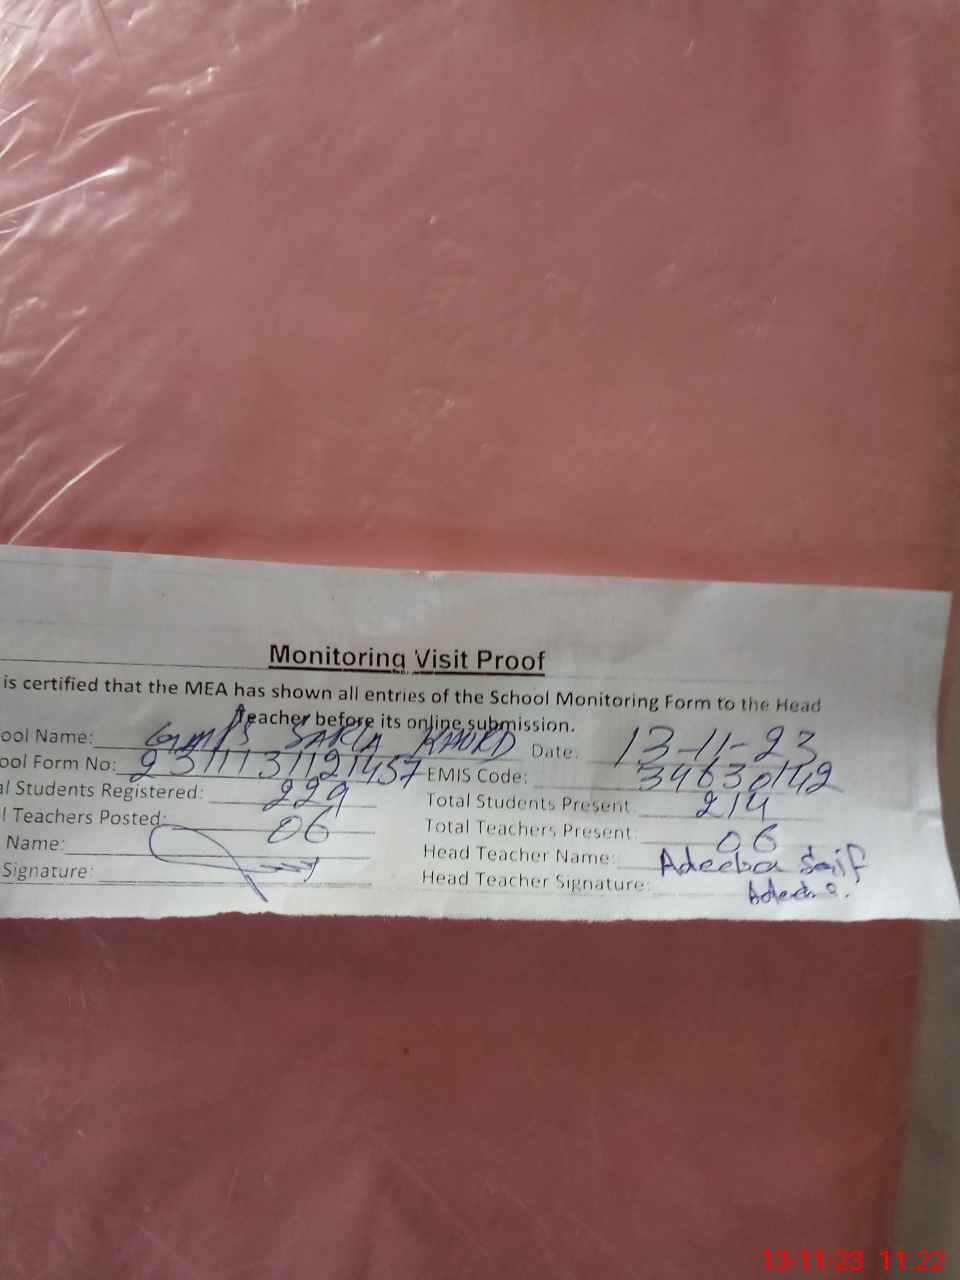 Monitoring Visit Proof
is certified that the MEA has shown all entries of the School Monitoring Form to the Head
Teacher before its online submission.
ool Name: GMPS SARLA KHURD Date: 13-11-23
ool Form No: 2311131121457 EMIS Code: 34630142
al Students Registered: 229 Total Students Present 214
l Teachers Posted: 06 Total Teachers Present: 06
Name: Head Teacher Name: Adeeba Saif
Signature: Head Teacher Signature:
13-11-23 11:22